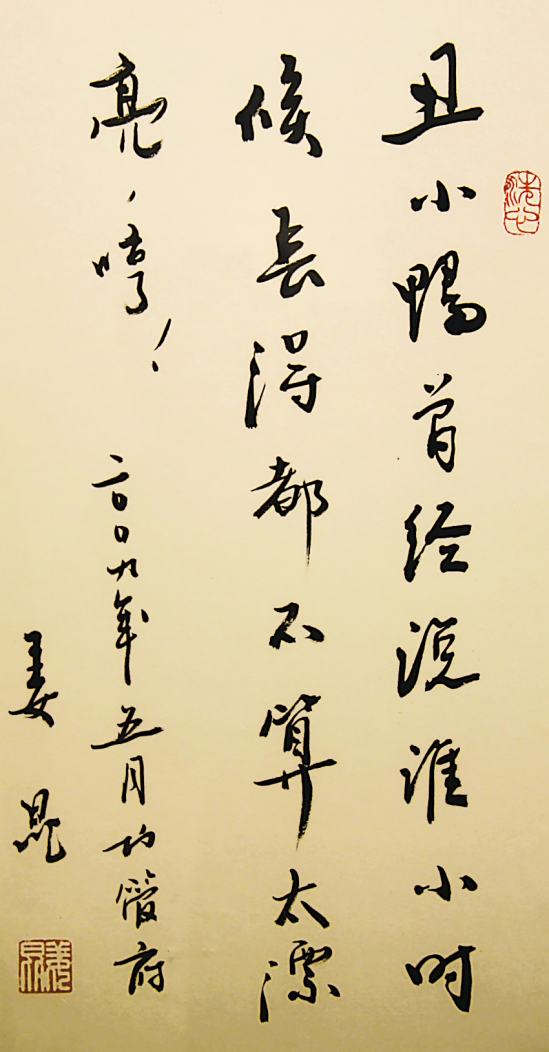 丑小鸭曾经说谁小时
候长得都不算太漂
亮，哼！
二〇〇九年五月
姜晁